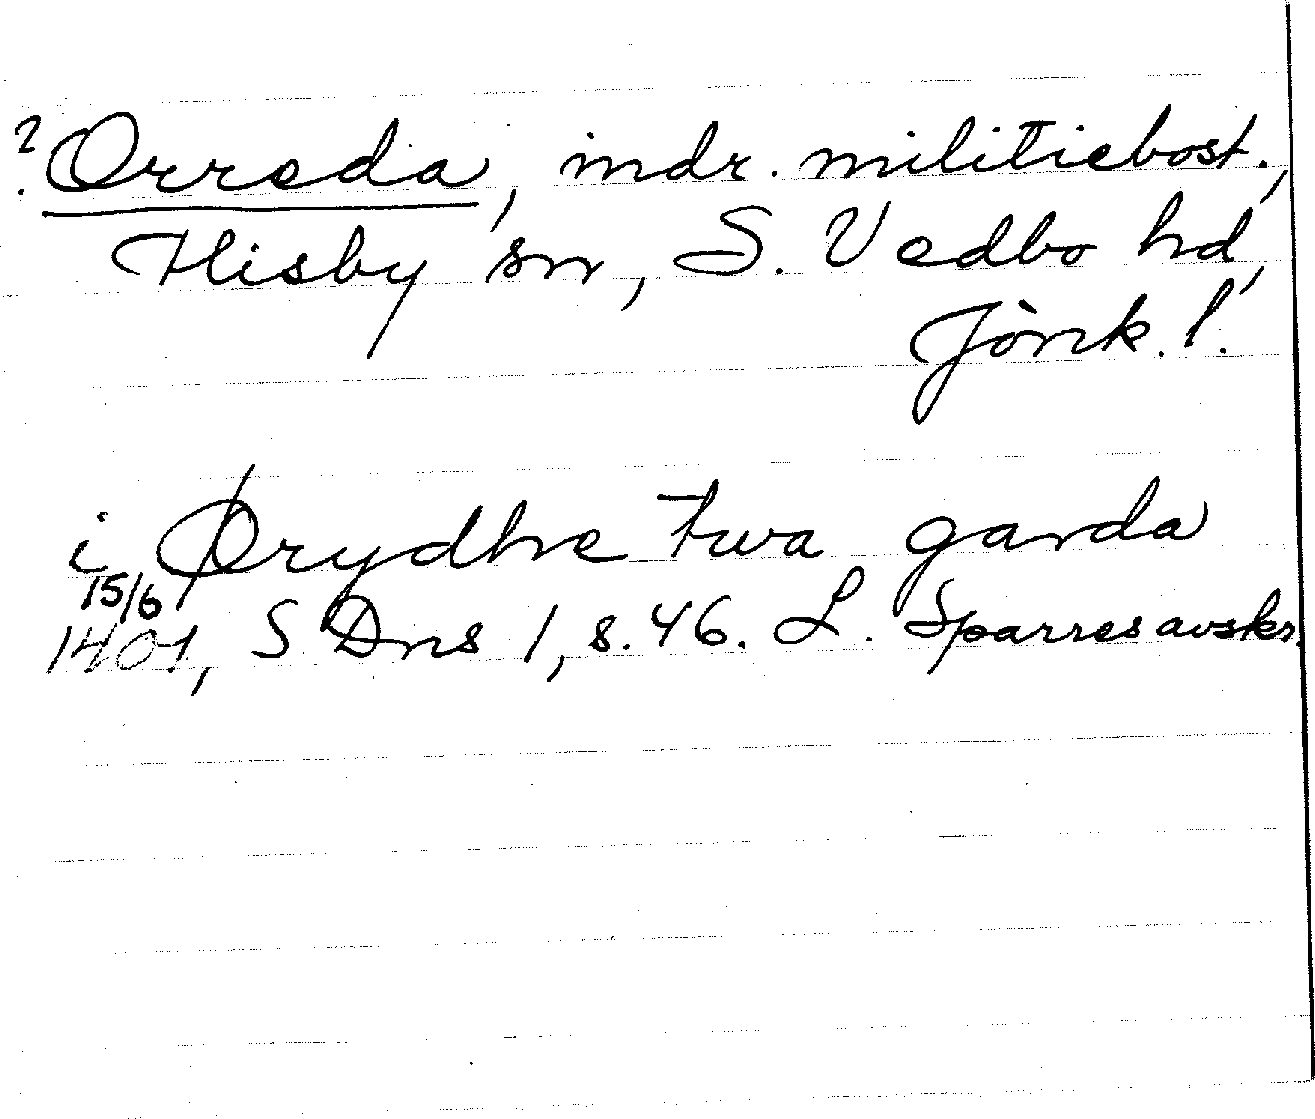 ? Orreda, indr. militiebost.,
Flisby sn, S. Vedbo hd,
Jönk. l.
i Ørydhe twa garda
15/6
1401, S Dns 1, s. 46. L. Sparres avskr.